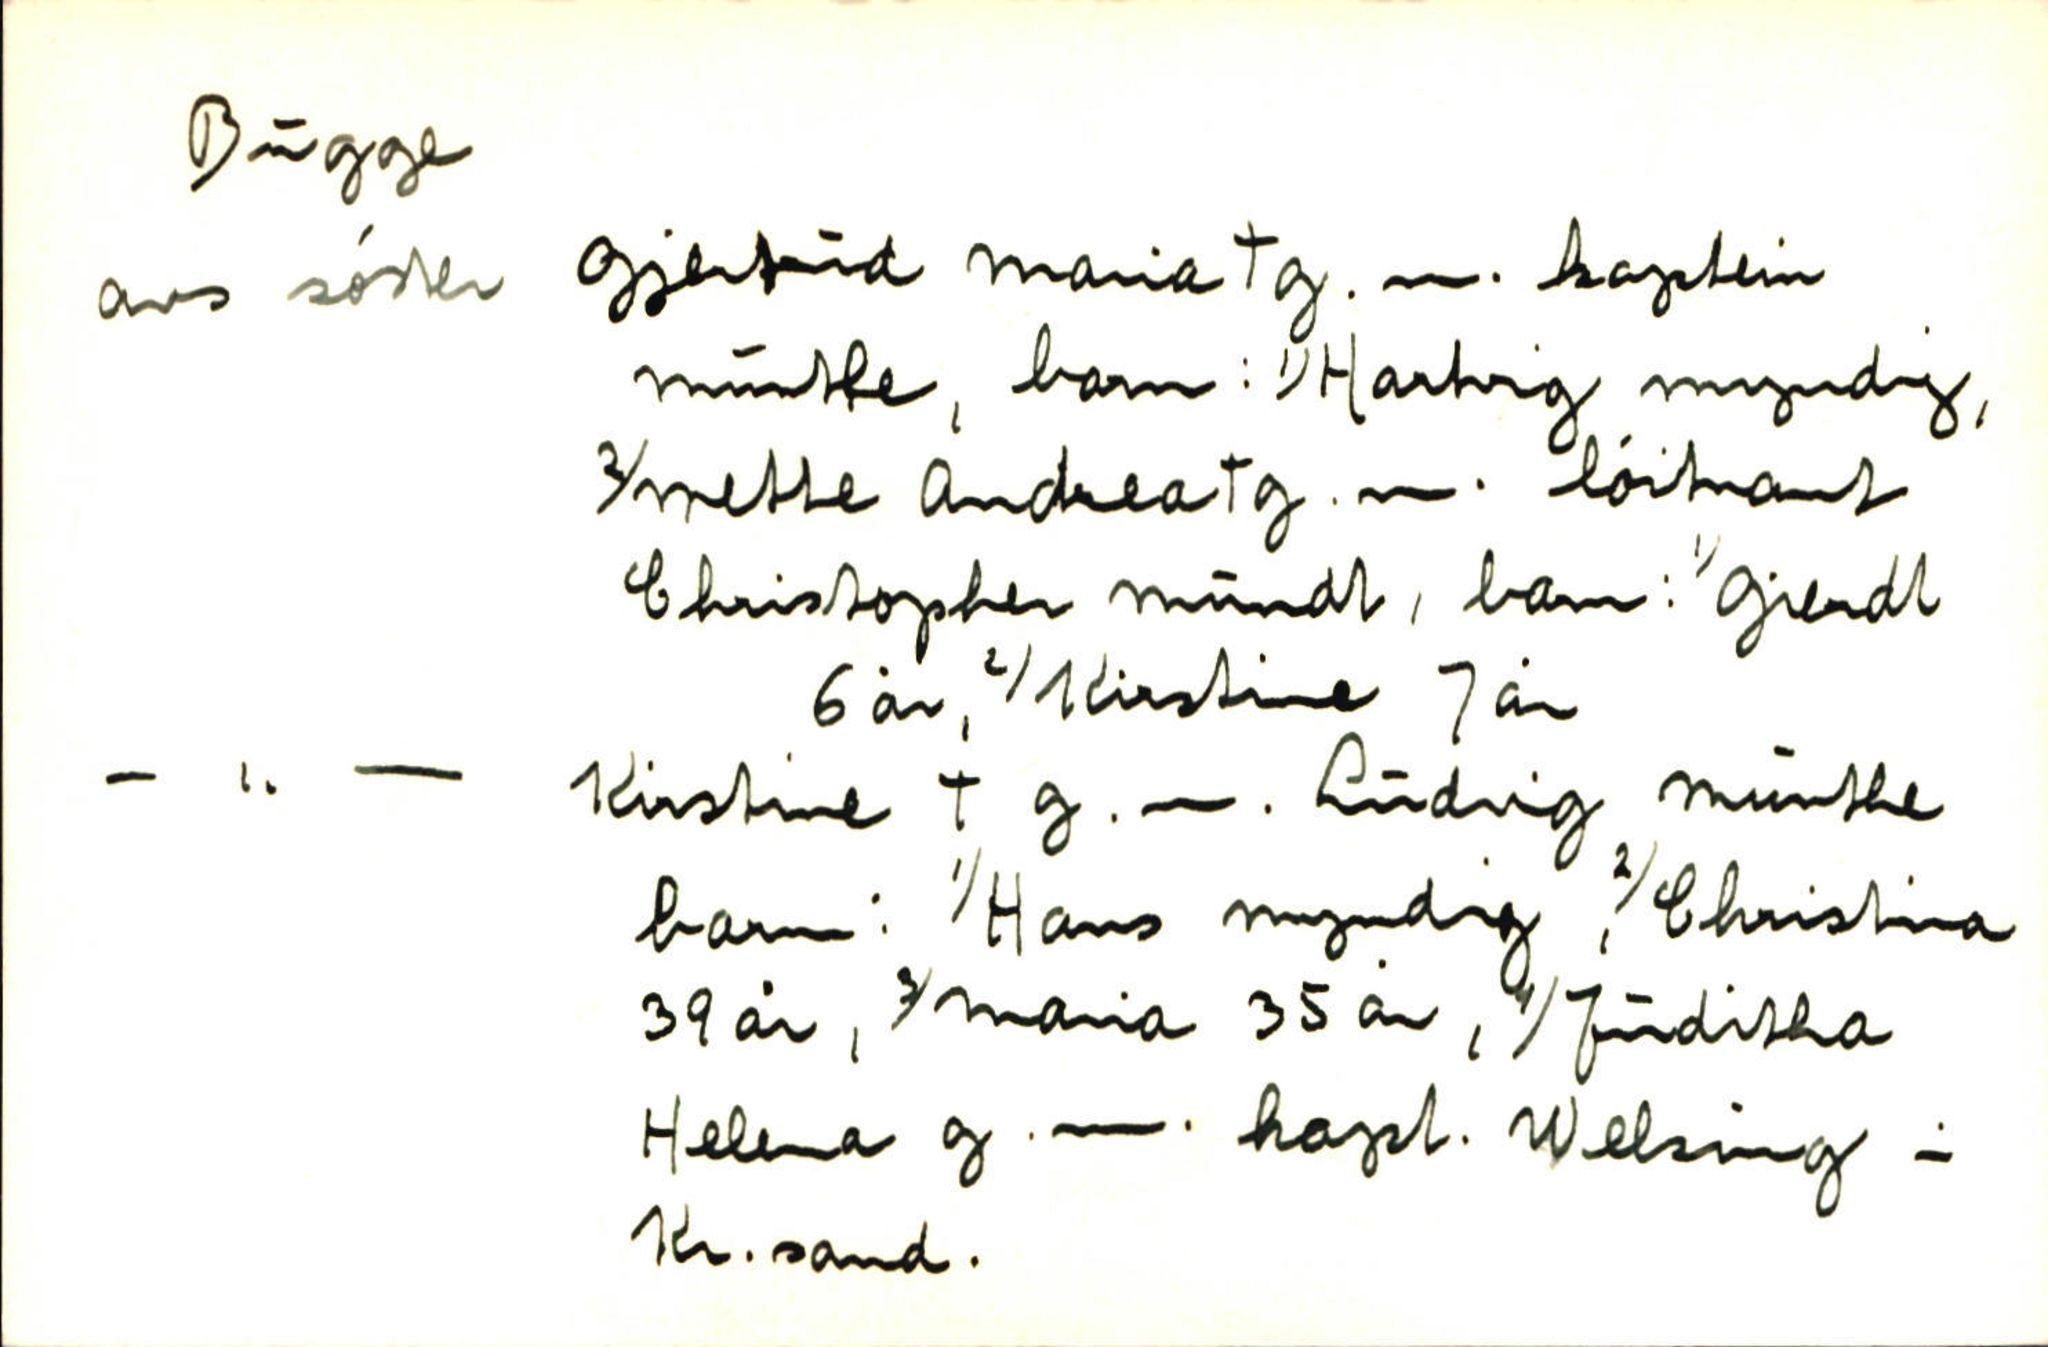 Bugge
avs søster Gjertrud Maria † g. m. kaptein
Munthe, barn: 1/ Hartvig myndig,
2/ Mette Andrea † g. m. løitnant
Christopher Mundt, barn: 1/ Gjerdt
6 år, 2/ Kirstine 7 år
— „ — Kirstine † g. m. Ludvig Munthe
barn: 1/ Hans myndig, 2/ Christina
39 år, 3/ Maria 35 år, 4/ Juditha
Helena g. m. kapt. Welsing i
Kr.sand.